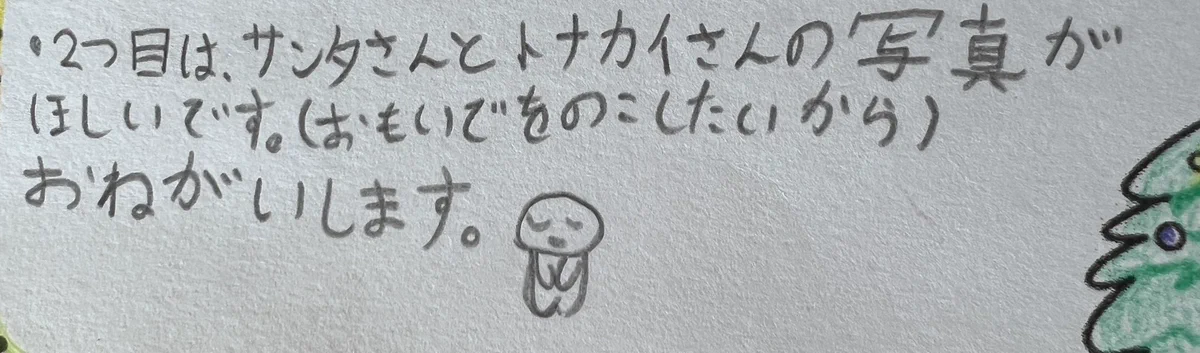 ・2つ目は、サンタさんとトナカイさんの写真が
ほしいです。(おもいでをのこしたいから)
おねがいします。